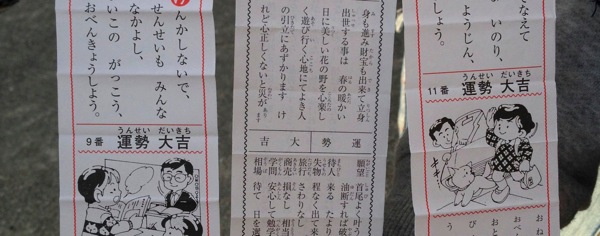 んかしないで、
せんせいも みんな
なかよし、
いこの がっこう、
おべんきょうしよう。
9番 運勢 大吉
うんせい だいきち
身も進み財宝も出来て立身
出世する事は 春の暖かい
日に美しい花の野を心楽し
く遊び行く心地にてよき人
の引立にあずかります け
れど心正しくないと災が
ます
運勢大吉
願望 首尾よく叶う
油断すれば破
待人 来る たより
失物 程なく出て来
旅行 さわりなし
商売 損なし 相当
学問 安心して勉学
相場 待て 日を選
なえて
い のり、
ようじん、
しょう。
11番 運勢 大吉
うんせい だいきち